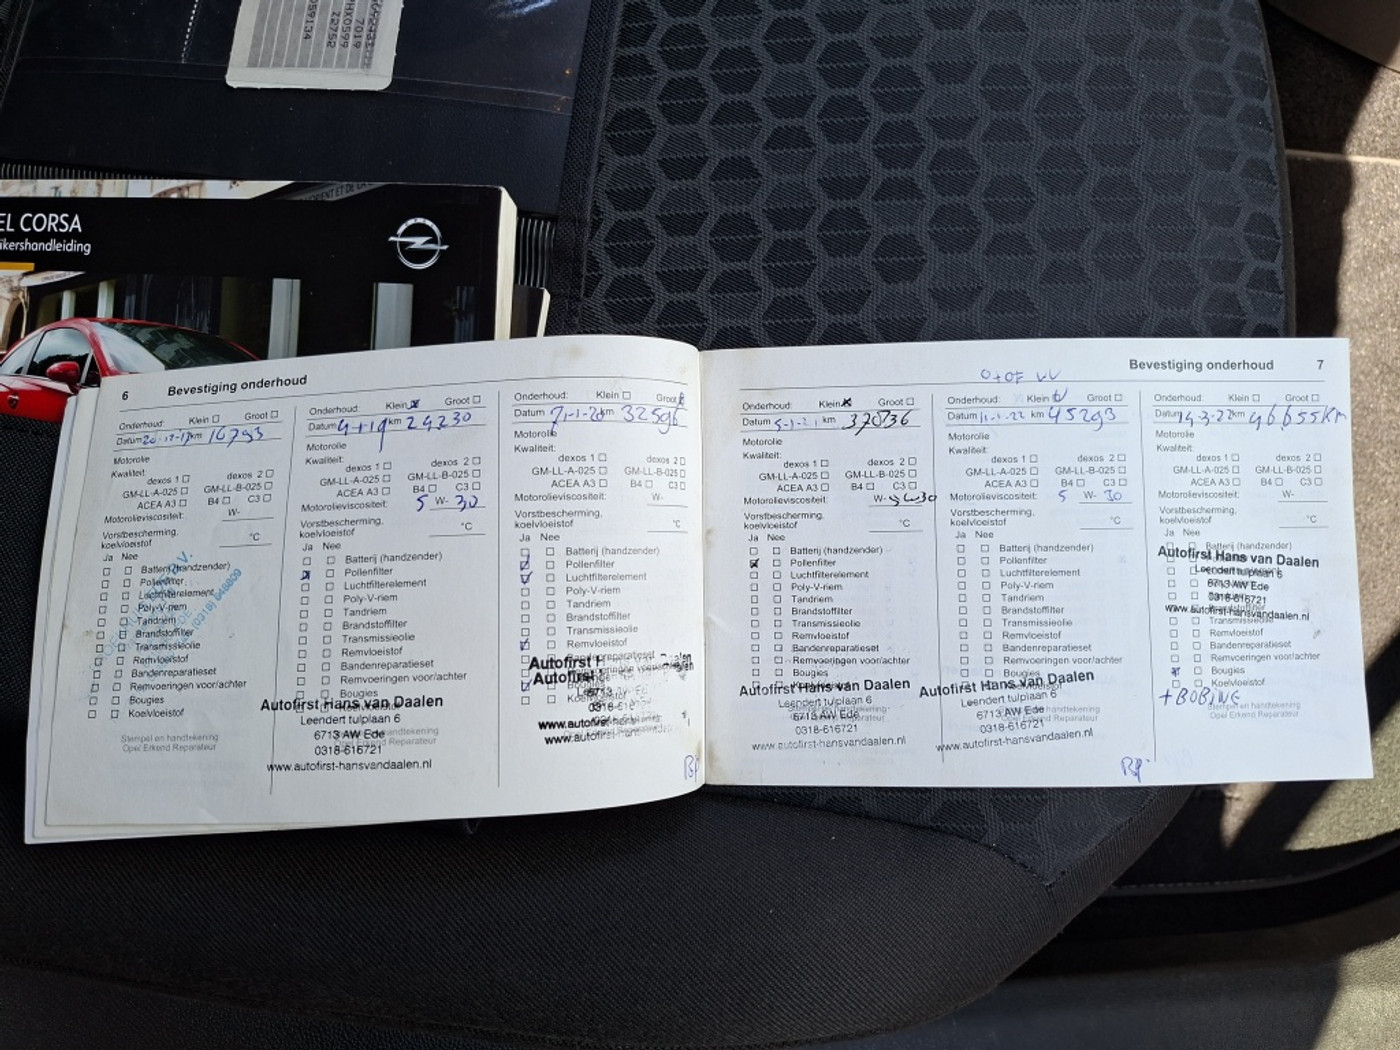 7019
Z2752
059134
EL CORSA
ikershandleiding
6
Bevestiging onderhoud
Klein Groot
Datum 20-12-17 km 16793
Motorolie
Kwaliteit:
dexos 1 dexos 2
GM-LL-A-025 GM-LL-B-025
ACEA A3 B4 C3
Motorolieviscositeit: W-
Vorstbescherming,
koelvloeistof °C
Ja Nee
Batterij (handzender)
Pollenfilter
Luchtfilterelement
Poly-V-riem
Tandriem
Brandstoffilter
Transmissieolie
Remvloeistof
Bandenreparatieset
Remvoeringen voor/achter
Bougies
Koelvloeistof
(0318) 648809
Stempel en handtekening
Opel Erkend Reparateur
Onderhoud: Klein Groot
Datum km 24230
Motorolie
Kwaliteit:
dexos 1 dexos 2
GM-LL-A-025 GM-LL-B-025
ACEA A3 B4 C3
Motorolieviscositeit: 5 W- 30
Vorstbescherming,
koelvloeistof °C
Ja Nee
Batterij (handzender)
Pollenfilter
Luchtfilterelement
Poly-V-riem
Tandriem
Brandstoffilter
Transmissieolie
Remvloeistof
Bandenreparatieset
Remvoeringen voor/achter
Bougies
Autofirst Hans van Daalen
Leendert tulplaan 6
6713 AW Ede
0318-616721
www.autofirst-hansvandaalen.nl
Onderhoud: Klein Groot
Datum 7-1-20 km 32596
Motorolie
Kwaliteit:
dexos 1 dexos 2
GM-LL-A-025 GM-LL-B-025
ACEA A3 B4 C3
Motorolieviscositeit: W-
Vorstbescherming,
koelvloeistof °C
Ja Nee
Batterij (handzender)
Pollenfilter
Luchtfilterelement
Poly-V-riem
Tandriem
Brandstoffilter
Transmissieolie
Remvloeistof
Autofirst
Autofirst
Bevestiging onderhoud 7
Onderhoud: Klein Groot
Datum 5-1-21 km 37036
Motorolie
Kwaliteit:
dexos 1 dexos 2
GM-LL-A-025 GM-LL-B-025
ACEA A3 B4 C3
Motorolieviscositeit: W- 5w30
Vorstbescherming,
koelvloeistof °C
Ja Nee
Batterij (handzender)
Pollenfilter
Luchtfilterelement
Poly-V-riem
Tandriem
Brandstoffilter
Transmissieolie
Remvloeistof
Bandenreparatieset
Remvoeringen voor/achter
Autofirst Hans van Daalen
Leendert tulplaan 6
6713 AW Ede
0318-616721
www.autofirst-hansvandaalen.nl
Onderhoud: Klein Groot
Datum 11-1-22 km 45293
Motorolie
Kwaliteit:
dexos 1 dexos 2
GM-LL-A-025 GM-LL-B-025
ACEA A3 B4 C3
Motorolieviscositeit: 5 W- 30
Vorstbescherming,
koelvloeistof °C
Ja Nee
Batterij (handzender)
Pollenfilter
Luchtfilterelement
Poly-V-riem
Tandriem
Brandstoffilter
Transmissieolie
Remvloeistof
Bandenreparatieset
Remvoeringen voor/achter
Autofirst Hans van Daalen
Leendert tulplaan 6
6713 AW Ede
0318-616721
www.autofirst-hansvandaalen.nl
Onderhoud: Klein Groot
Datum 14-3-22 km 46655 km
Motorolie
Kwaliteit:
dexos 1 dexos 2
GM-LL-A-025 GM-LL-B-025
ACEA A3 B4 C3
Motorolieviscositeit: W-
Vorstbescherming,
koelvloeistof °C
Ja Nee
Batterij (handzender)
Autofirst Hans van Daalen
Leendert tulplaan 6
6713 AW Ede
0318-616721
www.autofirst-hansvandaalen.nl
Transmissieolie
Remvloeistof
Bandenreparatieset
Remvoeringen voor/achter
Bougies
Koelvloeistof
+BOBINE
Stempel en handtekening
Opel Erkend Reparateur